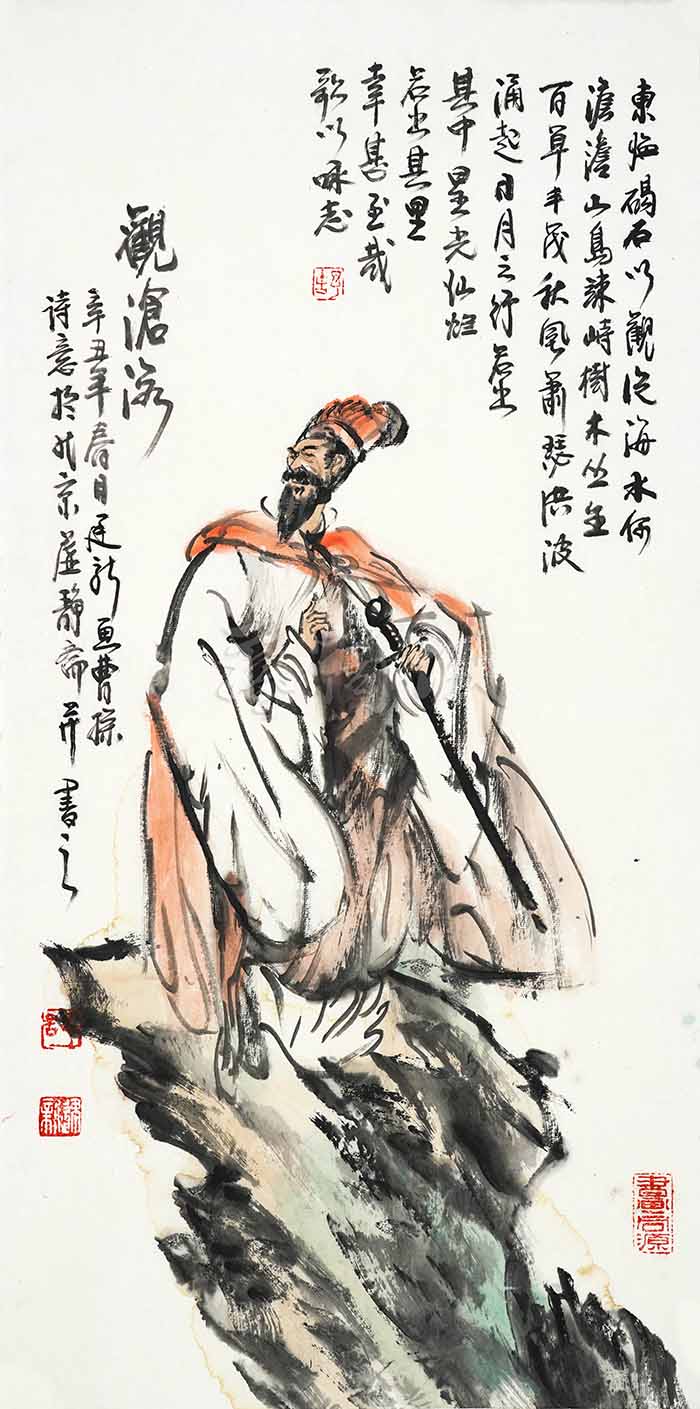 東臨碣石以觀滄海水何
澹澹山島竦峙樹木丛生
百草丰茂秋風蕭瑟洪波
涌起日月之行若出
其中星光
若出其里
幸甚至哉
歌以咏志
觀滄海
辛丑年春月 新画曹操
诗意於北京虚静斋并書之
書畫同源